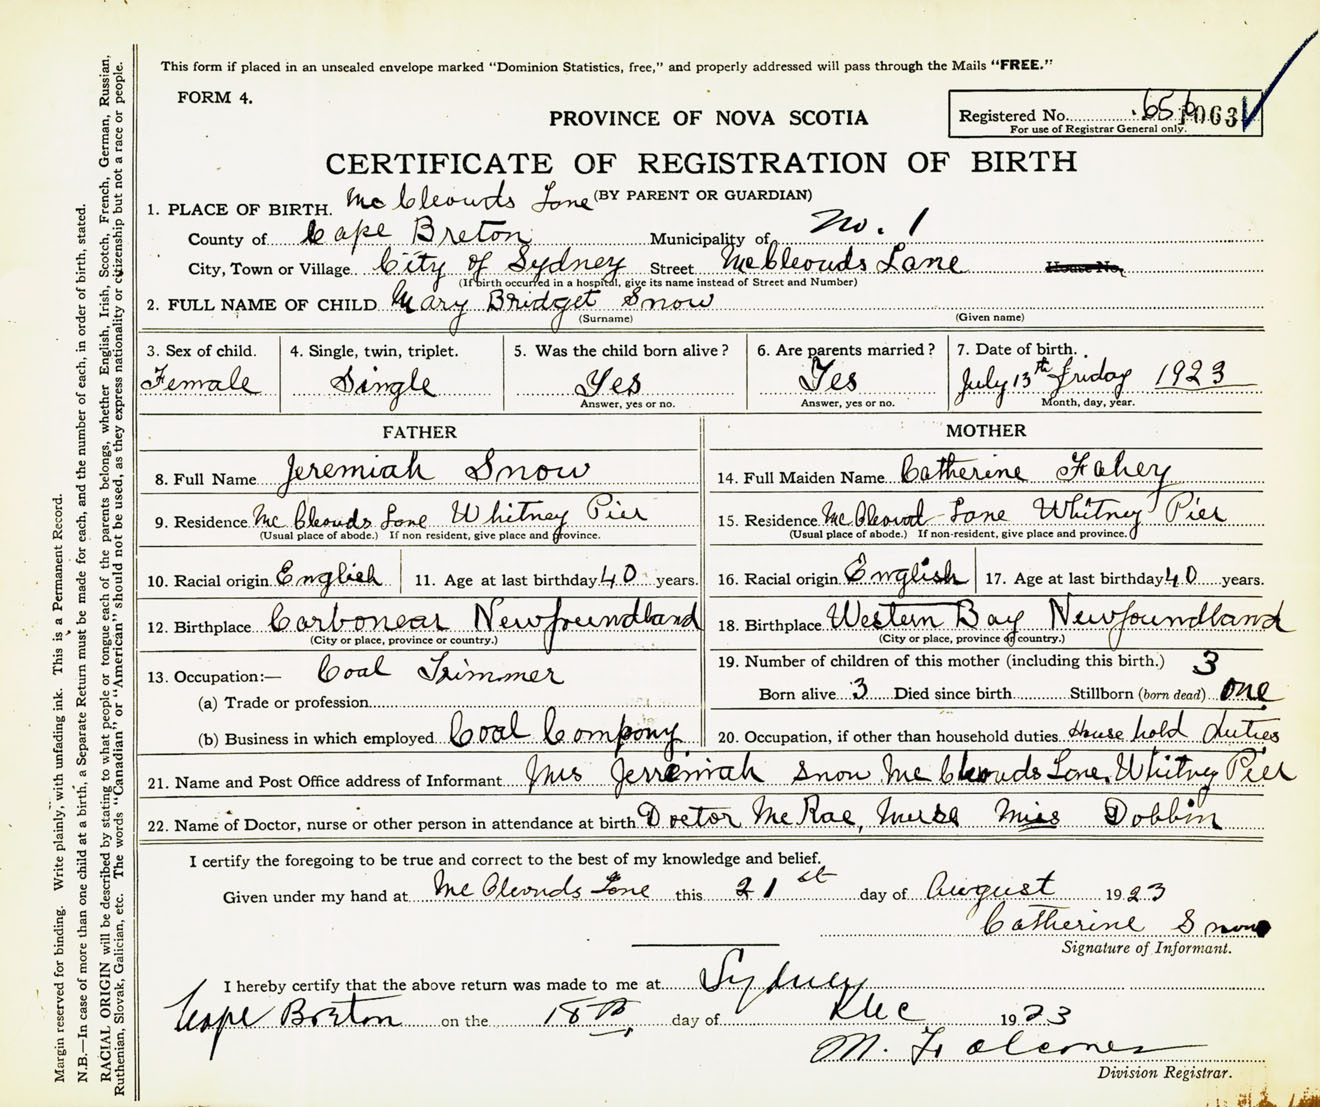 This form if placed in an unsealed envelope marked "Dominion Statistics, free," and properly addressed will pass through the Mails "FREE."
FORM 4.
PROVINCE OF NOVA SCOTIA
Registered No. 656 10631
For use of Registrar General only.
CERTIFICATE OF REGISTRATION OF BIRTH
(BY PARENT OR GUARDIAN)
1. PLACE OF BIRTH. Mc Cleouds Lane
County of Cape Breton Municipality of No. 1
City, Town or Village City of Sydney Street McCleouds Lane House No.
(If birth occurred in a hospital, give its name instead of Street and Number)
2. FULL NAME OF CHILD Mary Bridget Snow
(Surname) (Given name)
3. Sex of child. 4. Single, twin, triplet. 5. Was the child born alive? 6. Are parents married? 7. Date of birth.
Female Single Yes Yes July 13th friday 1923
Answer, yes or no. Answer, yes or no. Month, day, year.
FATHER MOTHER
8. Full Name Jeremiah Snow 14. Full Maiden Name Catherine Fahey
9. Residence Mc Cleouds Lane Whitney Pier 15. Residence Mc Cleoud Lane Whitney Pier
(Usual place of abode.) If non resident, give place and province. (Usual place of abode.) If non-resident, give place and province.
10. Racial origin English 11. Age at last birthday 40 years. 16. Racial origin English 17. Age at last birthday 40 years.
12. Birthplace Carbonear Newfoundland 18. Birthplace Western Bay Newfoundland
(City or place, province or country.) (City or place, province or country.)
13. Occupation:— Coal Trimmer 19. Number of children of this mother (including this birth.) 3
(a) Trade or profession Born alive 3 Died since birth Stillborn (born dead) one
(b) Business in which employed Coal Company 20. Occupation, if other than household duties House hold duties
21. Name and Post Office address of Informant Mrs Jerremiah Snow Mc Cleouds Lane, Whitney Pier
22. Name of Doctor, nurse or other person in attendance at birth Doctor McRae, Nurse Miss Dobbin
I certify the foregoing to be true and correct to the best of my knowledge and belief.
Given under my hand at Mc Cleouds Lane this 21st day of August 1923
Catherine Snow
Signature of Informant.
I hereby certify that the above return was made to me at Sydney
Cape Breton on the 18th day of Dec 1923
M.
Division Registrar.
Margin reserved for binding. Write plainly, with unfading ink. This is a Permanent Record.
N.B.—In case of more than one child at a birth, a Separate Return must be made for each, and the number of each, in order of birth, stated.
RACIAL ORIGIN will be described by stating to what people or tongue each of the parents belongs, whether English, Irish, Scotch, French, German, Russian,
Ruthenian, Slovak, Galician, etc. The words "Canadian" or "American" should not be used, as they express nationality or citizenship but not a race or people.